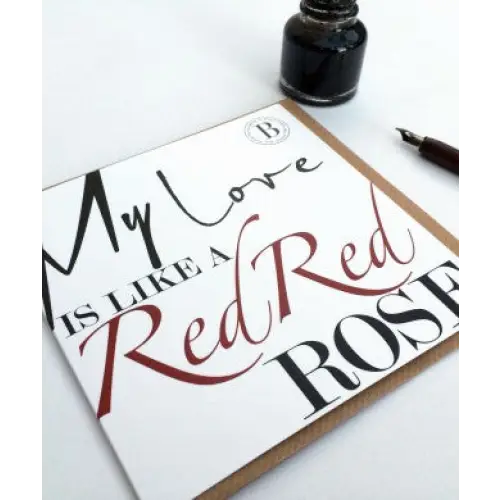 B
My Love
IS LIKE A
Red Red
ROSE